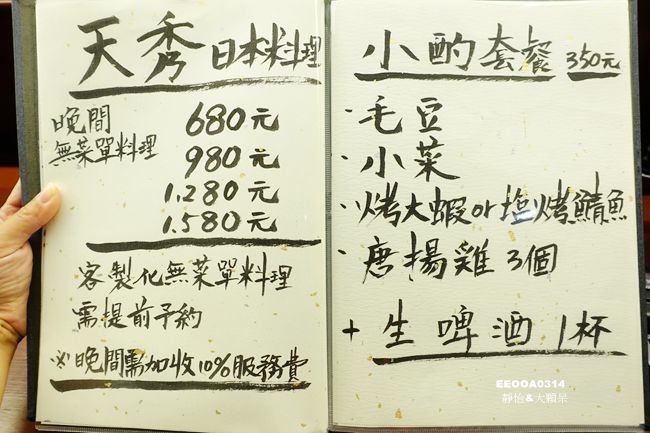 天秀 日本料理
晚間
無菜單料理
680元
980元
1.280元
1.580元
客製化無菜單料理
需提前予約
※晚間需加收10%服務費
小酌套餐 350元
·毛豆
·小菜
·烤大蝦or塩烤鯖魚
·唐揚雞3個
+生啤酒1杯
EEOOA0314
靜怡&大顆呆